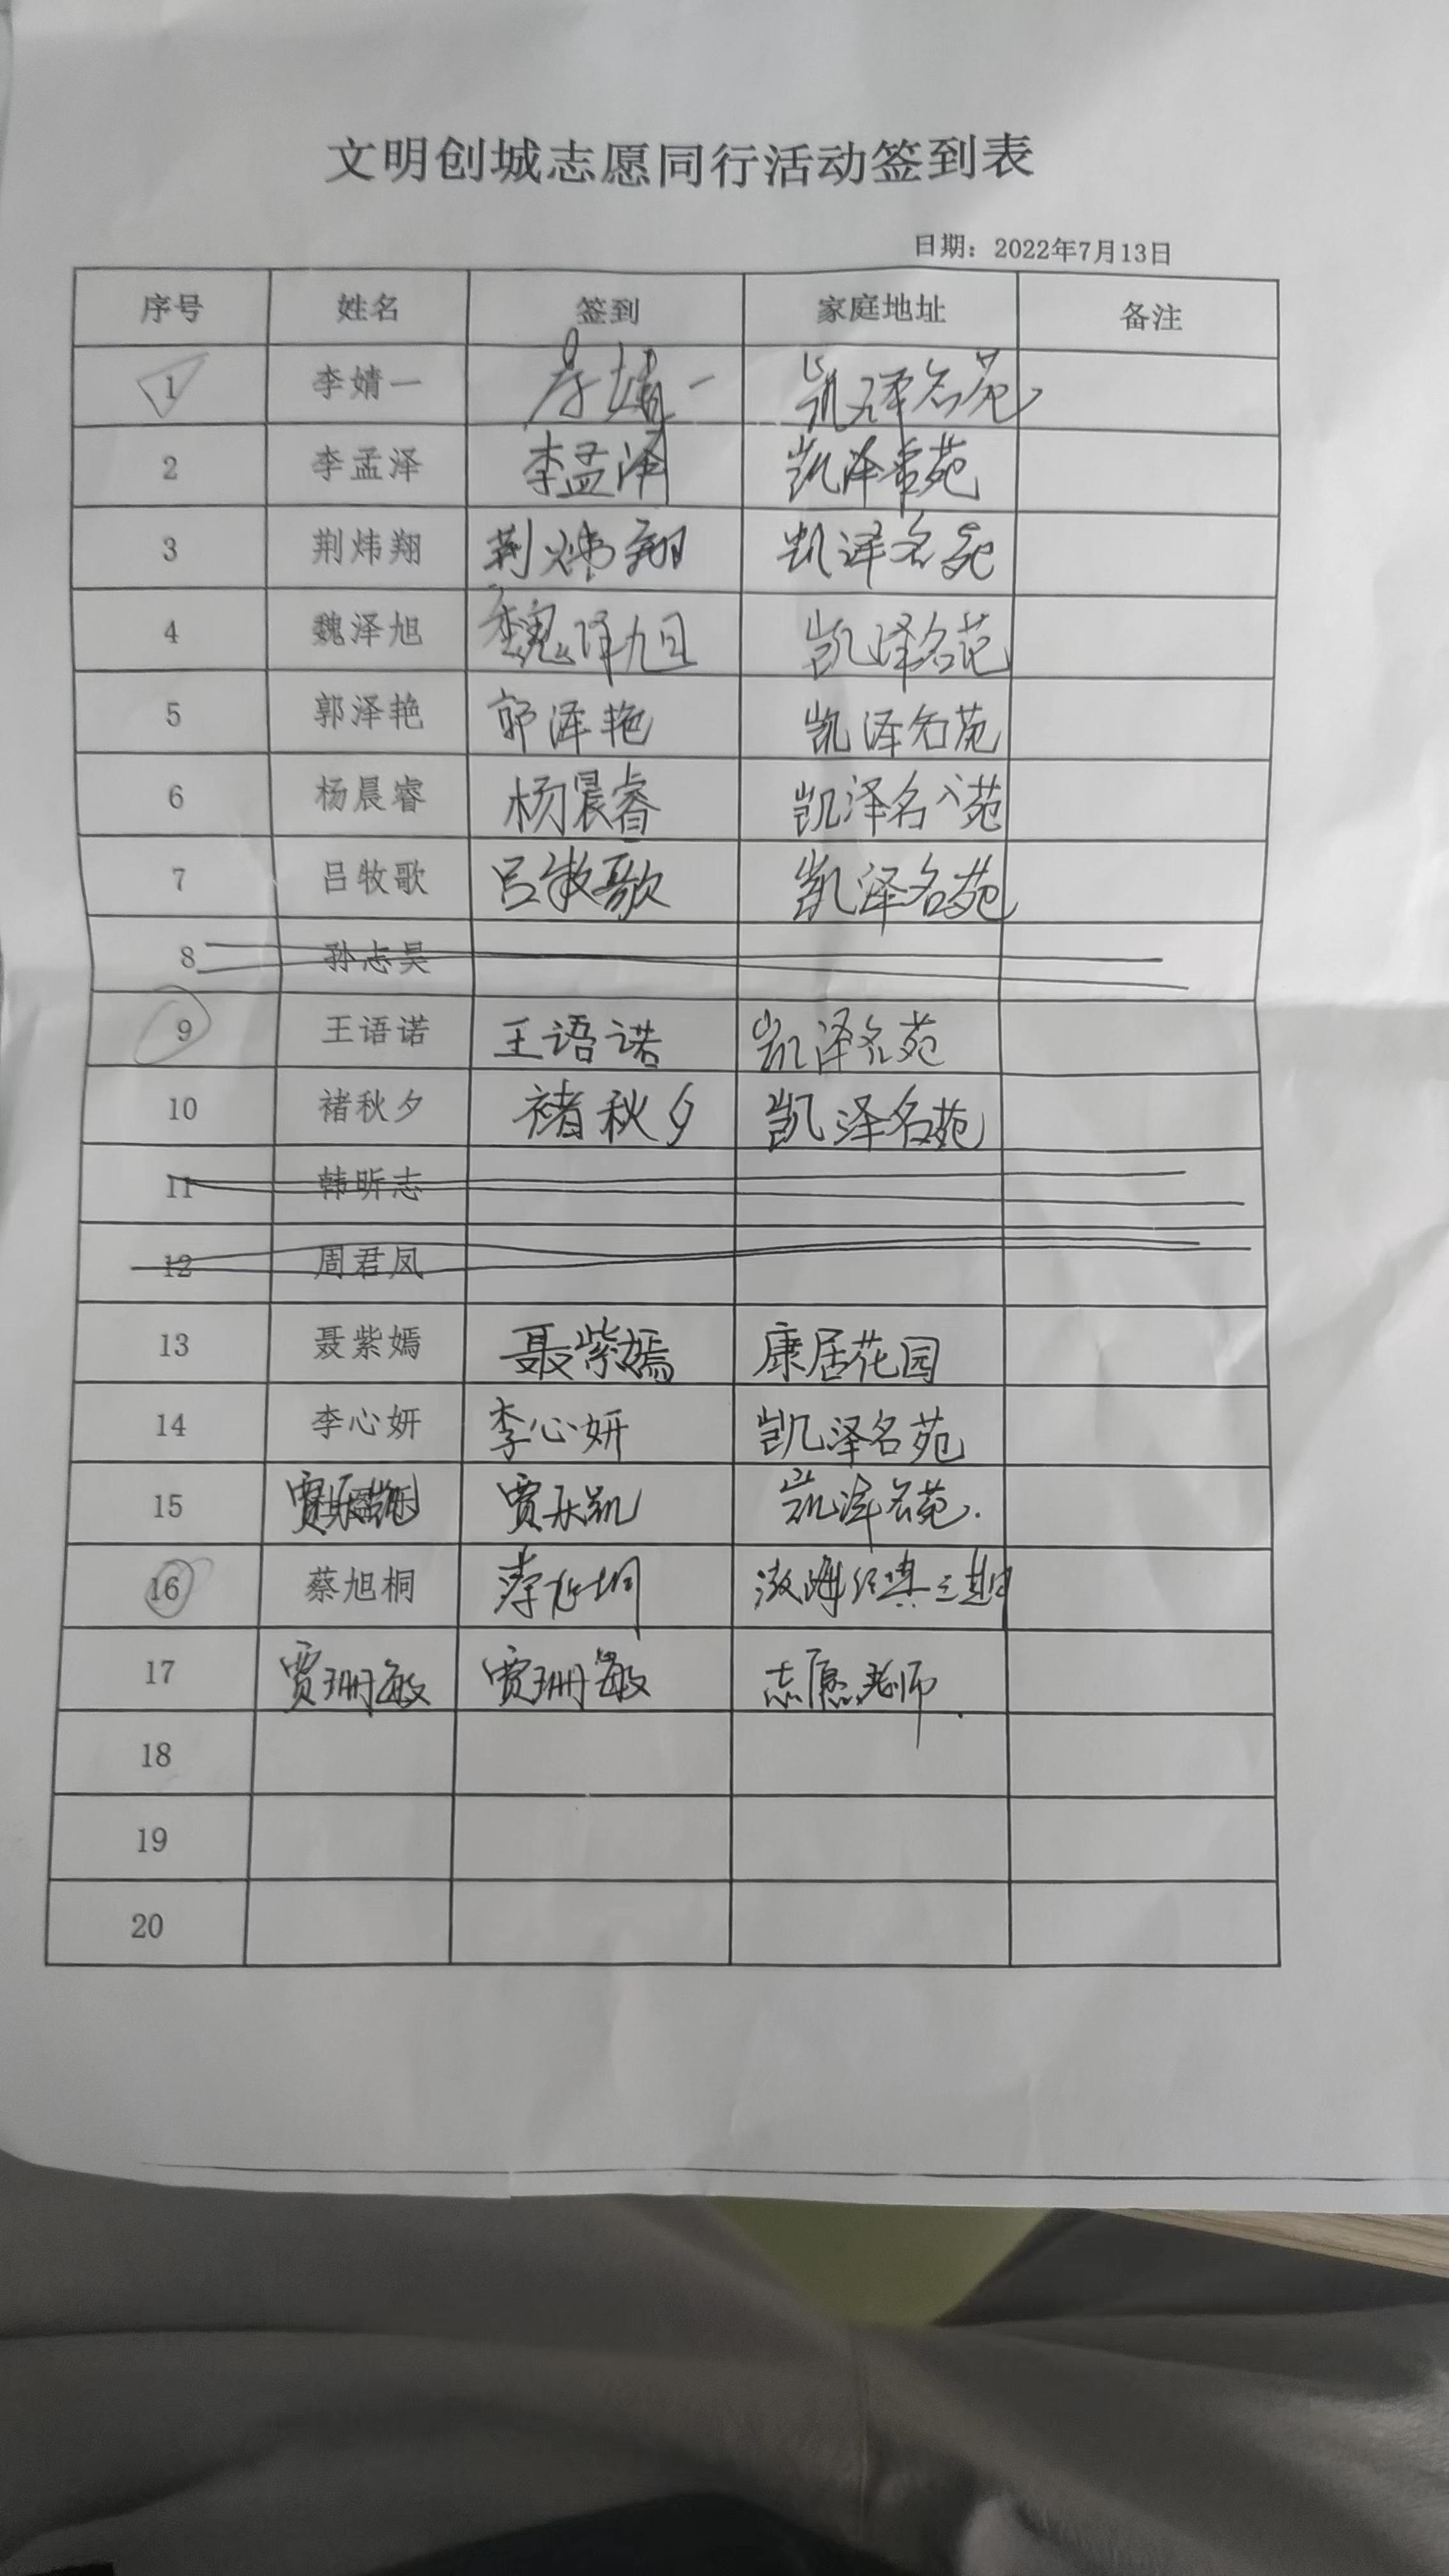 文明创城志愿同行活动签到表
日期：2022年7月13日
序号 姓名 签到 家庭地址 备注
1 李婧一 李婧一 凯泽名苑
2 李孟泽 李孟泽 凯泽名苑
3 荆炜翔 荆炜翔 凯泽名苑
4 魏泽旭 魏泽旭 凯泽名苑
5 郭泽艳 郭泽艳 凯泽名苑
6 杨晨睿 杨晨睿 凯泽名苑
7 吕牧歌 吕牧歌 凯泽名苑
8 孙志昊
9 王语诺 王语诺 凯泽名苑
10 褚秋夕 褚秋夕 凯泽名苑
11 韩昕志
12 周君凤
13 聂紫嫣 聂紫嫣 康居花园
14 李心妍 李心妍 凯泽名苑
15 贾 凯 凯泽名苑.
16 蔡旭桐 蔡旭桐 经典三期
17 贾珊敏 贾珊敏 志愿老师.
18
19
20